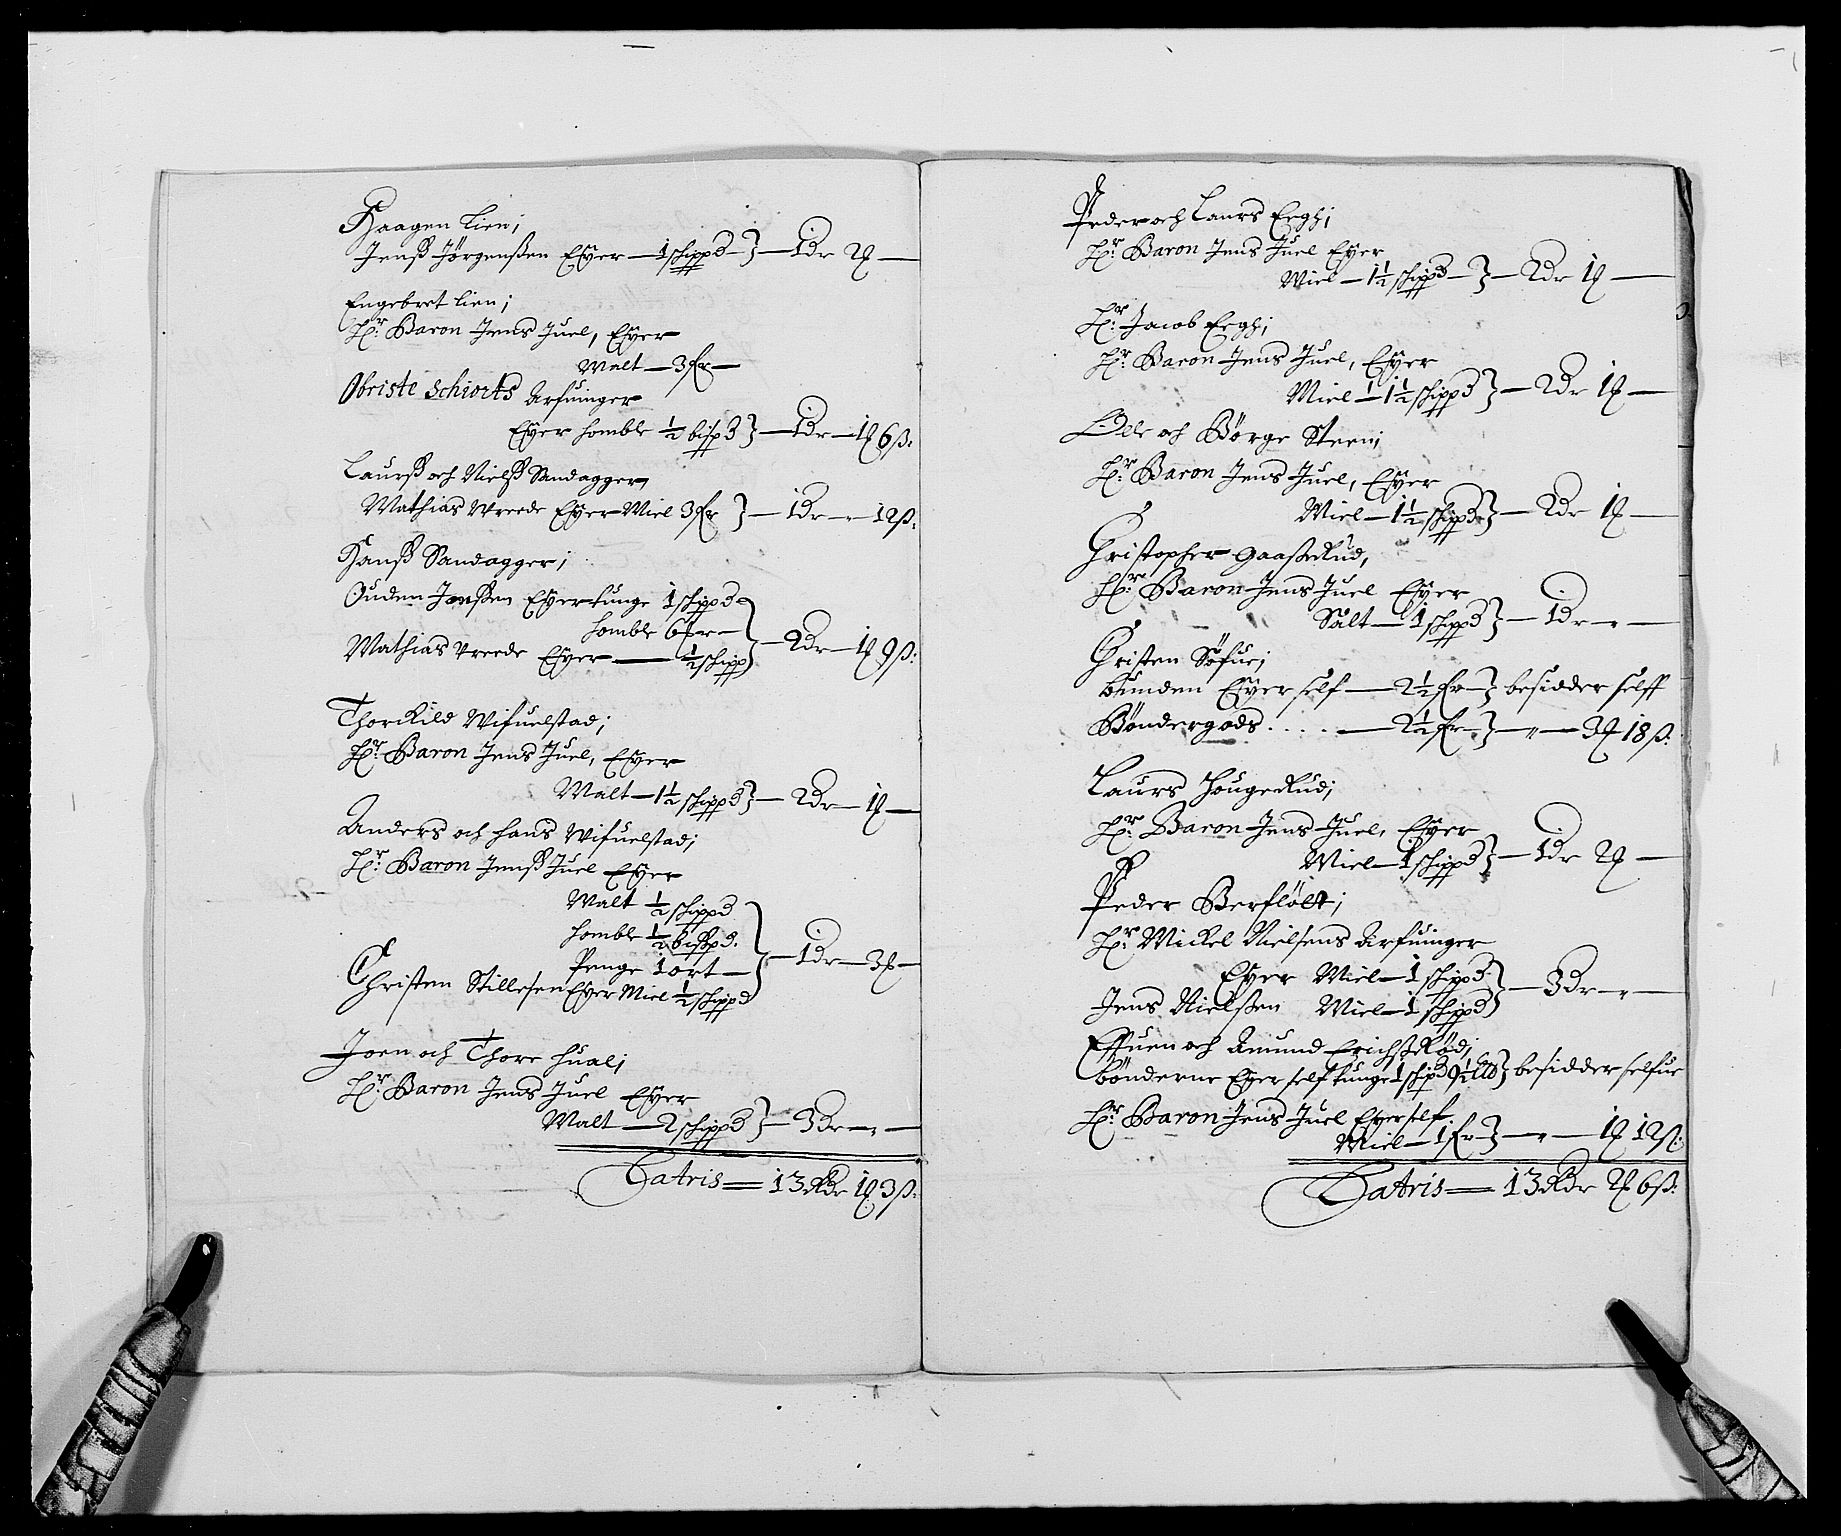 Haagen Lien;
Jenß Jörgenßen Eyer — 1 schippd — } — 1 dr 2 ꝛ —
Engebret Lien;
Hr: Baron Jens Juel, Eyer
Malt — 3 fr —
Obriste Schiorts Arfuinger
Eyer homble ½ bispd } — 1 dr — 1 ꝛ 6 ß:
Laurß och Nielß Sandagger,
Mathias Wreede Eyer Miel 3 fr } — 1 dr — „ 12 ß:
Hanß Sandagger;
Ouden Jonßen Eyer tunge 1 schippd
homble 6 fr —
Mathias Vreede Eyer — ½ schipp } — 2 dr — 1 ꝛ 9 ß:
Thorckild Wifuelstad;
Hr: Baron Jens Juel, Eyer
Malt — 1½ schippd } — 2 dr — 1 ꝛ —
Anders och hans Wifuelstad;
Hr: Baron Jenß Juel Eyer
Malt ½ schippd
homble ½ bißpd.
Penge 1 ort — } — 1 dr — 3 ꝛ —
Christen Stillesen Eyer Miel ½ schippd
Joen och Thore Hual;
Hr: Baron Jens Juel Eyer
Malt — 2 schippd } — 3 dr — „ —
Latris — 13 Rdr 1 ꝛ 3 ß:
Peder och Laurs Bergh;
Hr: Baron Jens Juel Eyer
Miel — 1½ schippd — } — 2 dr 1 ꝛ —
Hr: Jacob Bergh;
Hr: Baron Jens Juel, Eyer
Miel — 1½ schippd } — 2 dr 1 ꝛ —
Olle och Börge Steen;
Hr: Baron Jens Juel, Eyer
Miel — 1½ schippd } — 2 dr 1 ꝛ —
Christopher Gaaßerud,
Hr: Baron Jens Juel Eyer
Salt — 1 schippd } — 1 dr — „ —
Christen Söfue;
bunden Eyer self — 2½ fr — } besidder selff
Böndergods . . . . — 2½ fr — } — „ — 3 ꝛ 18 ß:
Laurs Hougerud;
Hr: Baron Jens Juel, Eyer
Miel — 1 schippd } — 1 dr 2 ꝛ —
Peder Berflött;
Hr: Mickel Nielsens Arfuinger
Eyer Miel — 1 schippd
Jens Nielßen Miel — 1 schippd } — 3 dr — „ —
Effuen och Amund Erichßröd;
bönderne Eyer self tunge 1 schipd 9½ Lld } besidder selfue
Hr: Baron Jens Juel Eyer self
Miel — 1 fr — } — „ — 1 ꝛ 12 ß:
Latris — 13 Rdr 2 ꝛ 6 ß: